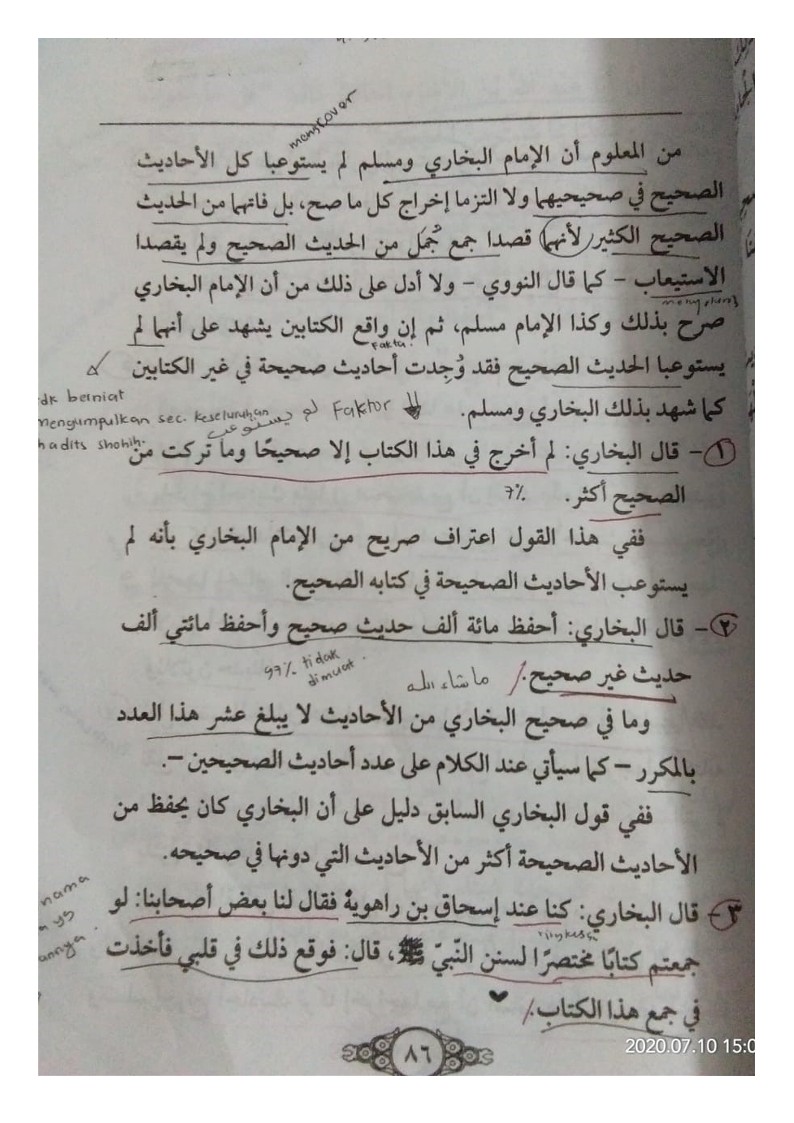 mengcover
من المعلوم أن الإمام البخاري ومسلم لم يستوعبا كل الأحاديث
الصحيح في صحيحيهما ولا التزما إخراج كل ما صح، بل فاتهما من الحديث
الصحيح الكثير لأنهما قصدا جمع جُمَل من الحديث الصحيح ولم يقصدا
الاستيعاب – كما قال النووي – ولا أدل على ذلك من أن الإمام البخاري
صرح بذلك وكذا الإمام مسلم، ثم إن واقع الكتابين يشهد على أنهما لم
fakta
يستوعبا الحديث الصحيح فقد وُجِدت أحاديث صحيحة في غير الكتابين
كما شهد بذلك البخاري ومسلم.
Faktor لم يستوعب
dk berniat
mengumpulkan sec. keseluruhan
hadits shohih.
١- قال البخاري: لم أخرج في هذا الكتاب إلا صحيحًا وما تركت من
الصحيح أكثر.
7%
ففي هذا القول اعتراف صريح من الإمام البخاري بأنه لم
يستوعب الأحاديث الصحيحة في كتابه الصحيح.
٢- قال البخاري: أحفظ مائة ألف حديث صحيح وأحفظ مائتي ألف
حديث غير صحيح.
ماشاء الله
97% tidak
dimuat.
وما في صحيح البخاري من الأحاديث لا يبلغ عشر هذا العدد
بالمكرر – كما سيأتي عند الكلام على عدد أحاديث الصحيحين –.
ففي قول البخاري السابق دليل على أن البخاري كان يحفظ من
الأحاديث الصحيحة أكثر من الأحاديث التي دونها في صحيحه.
nama
٣- قال البخاري: كنا عند إسحاق بن راهوية فقال لنا بعض أصحابنا: لو
جمعتم كتابًا مختصرًا لسنن النّبيّ ﷺ، قال: فوقع ذلك في قلبي فأخذت
في جمع هذا الكتاب.
٨٦
2020.07.10 15:0